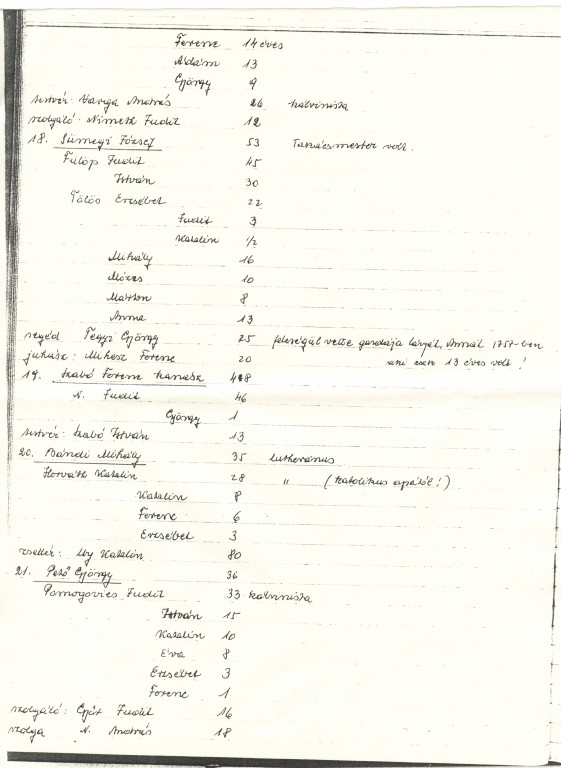 Ferenc 14 éves
Ádám 13
György 9
testvér: Varga András 26 kálvinista
szolgáló: Németh Judit 12
18. Sümegi József 53 Takácsmester volt.
Fülöp Judit 45
István 30
Tölös Erzsébet 22
Judit 3
Katalin 1/2
Mihály 16
Mózes 10
Márton 8
Anna 13
segéd György 25 feleségül vette gazdája lányát, Annát 1757-ben
juhász: Mikesz Ferenc 20 aki ekkor 13 éves volt!
19. Szabó Ferenc kanász 48
N. Judit 46
György 1
testvér: Szabó István 13
20. Bándi Mihály 35 lutheránus
Horváth Katalin 28 " (katolikus apától!)
Katalin 8
Ferenc 6
Erzsébet 3
zsellér: Katalin 80
21. Pető György 36
Pomogovics Judit 33 kálvinista
István 15
Katalin 10
Éva 8
Erzsébet 3
Ferenc 1
szolgáló: Judit 16
szolga N. András 18